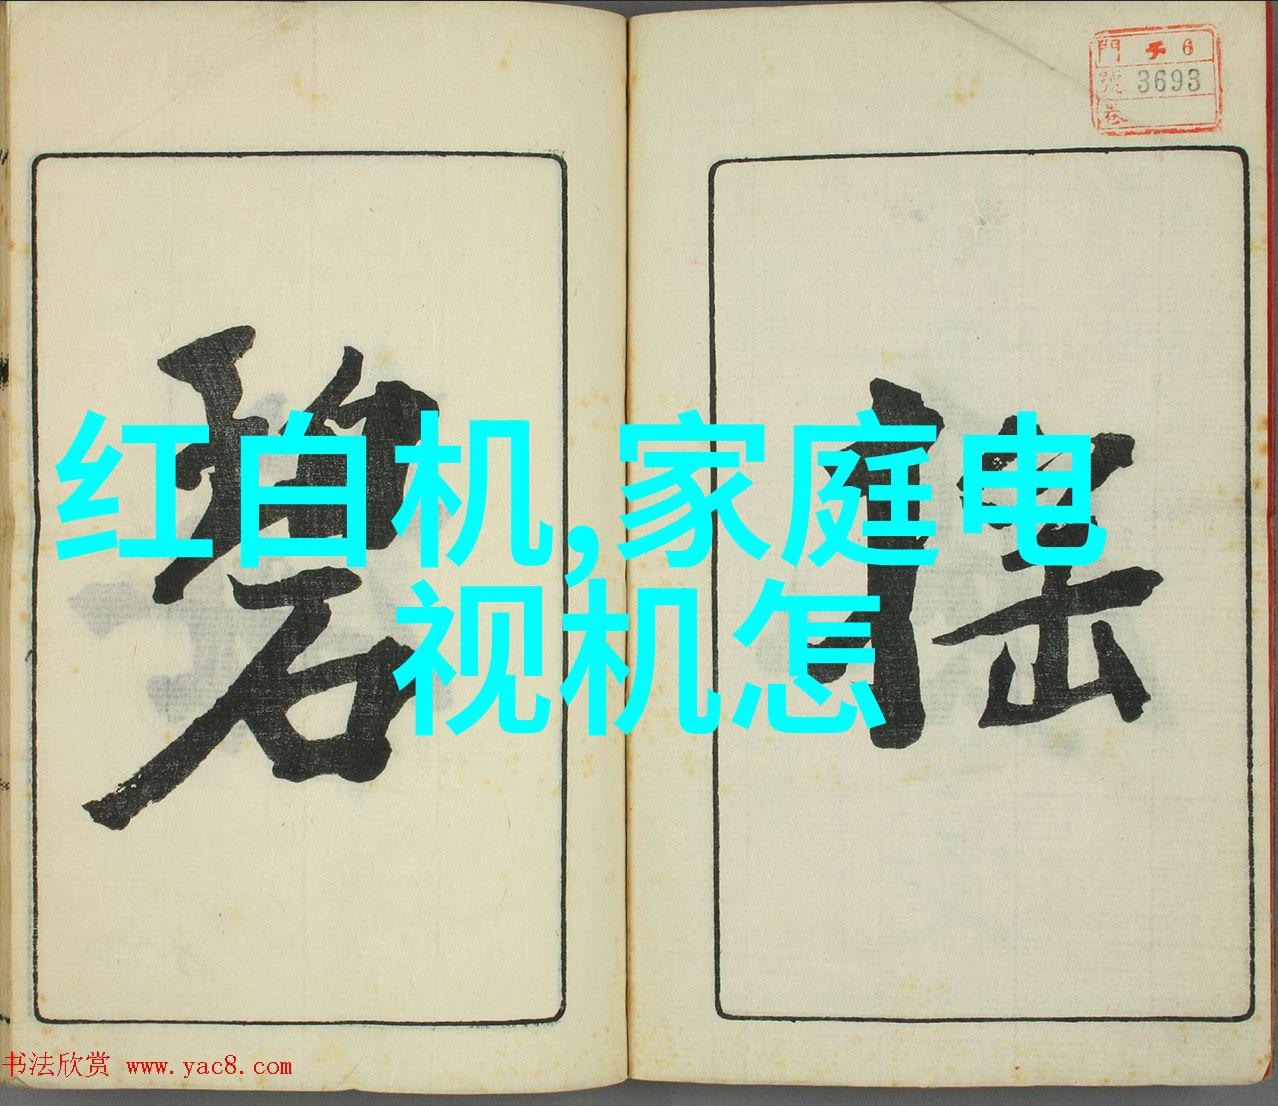 門 チ 6
號 3693
巻
碧
信
红白机,家庭电
视机怎
书法欣赏 www.yac8.com